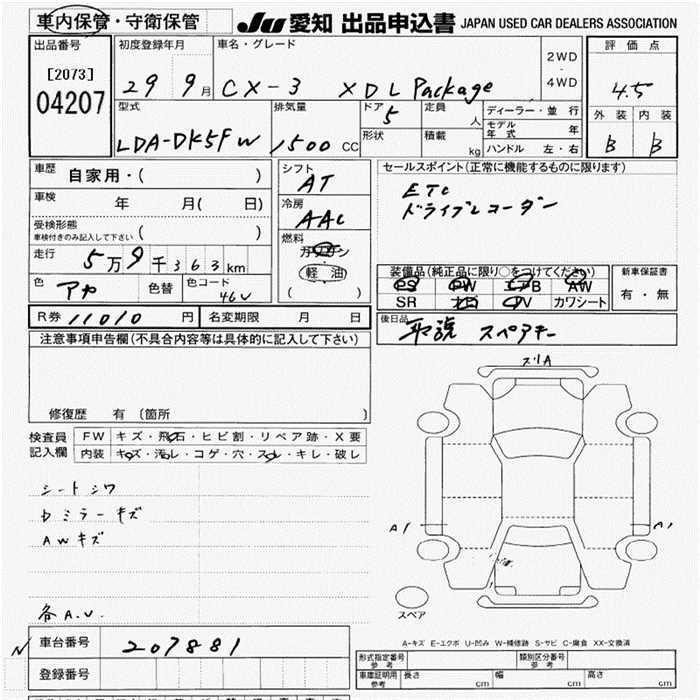 車内保管・守衛保管
JU 愛知 出品申込書 JAPAN USED CAR DEALERS ASSOCIATION
出品番号
[2073]
04207
初度登録年月
29 9月
車名・グレード
CX-3 XDL Package
2WD
・
4WD
評価点
4.5
外装 内装
B B
型式
LDA-DK5FW
排気量
1500 CC
ドア
5
定員
人
形状
積載
kg
ディーラー・並行
モデル年式 年
ハンドル 左・右
車歴 自家用・( )
車検 年 月( 日)
受検形態
車検付きのみ記入して下さい ( )
走行 5万9千363km
色 アカ 色替 色コード 46V
シフト
AT
冷房
AAC
燃料
ガソリン
軽油
( )
セールスポイント(正常に機能するものに限ります)
ETC
ドライブレコーダー
装備品(純正品に限り○をつけてください)
PS PW エアB AW
SR ナビ TV カワシート
新車保証書
有・無
後日品
取説 スペアキー
R券 11010 円 名変期限 月 日
注意事項申告欄(不具合内容等は具体的に記入して下さい)
修復歴 有 〔箇所 〕
検査員記入欄
FW キズ・飛石・ヒビ割・リペア跡・X要
内装 キズ・汚レ・コゲ・穴・スレ・キレ・破レ
シートシワ
Dミラーキズ
AWキズ
各A.U.
スリA
A1
A1
スペア
A-キズ E-エクボ U-凹み W-補修跡 S-サビ C-腐食 XX-交換済
N 車台番号 207881
登録番号
形式指定番号
参考
類別区分番号
参考
車庫証明用
参考
長さ cm 幅 cm 高さ cm